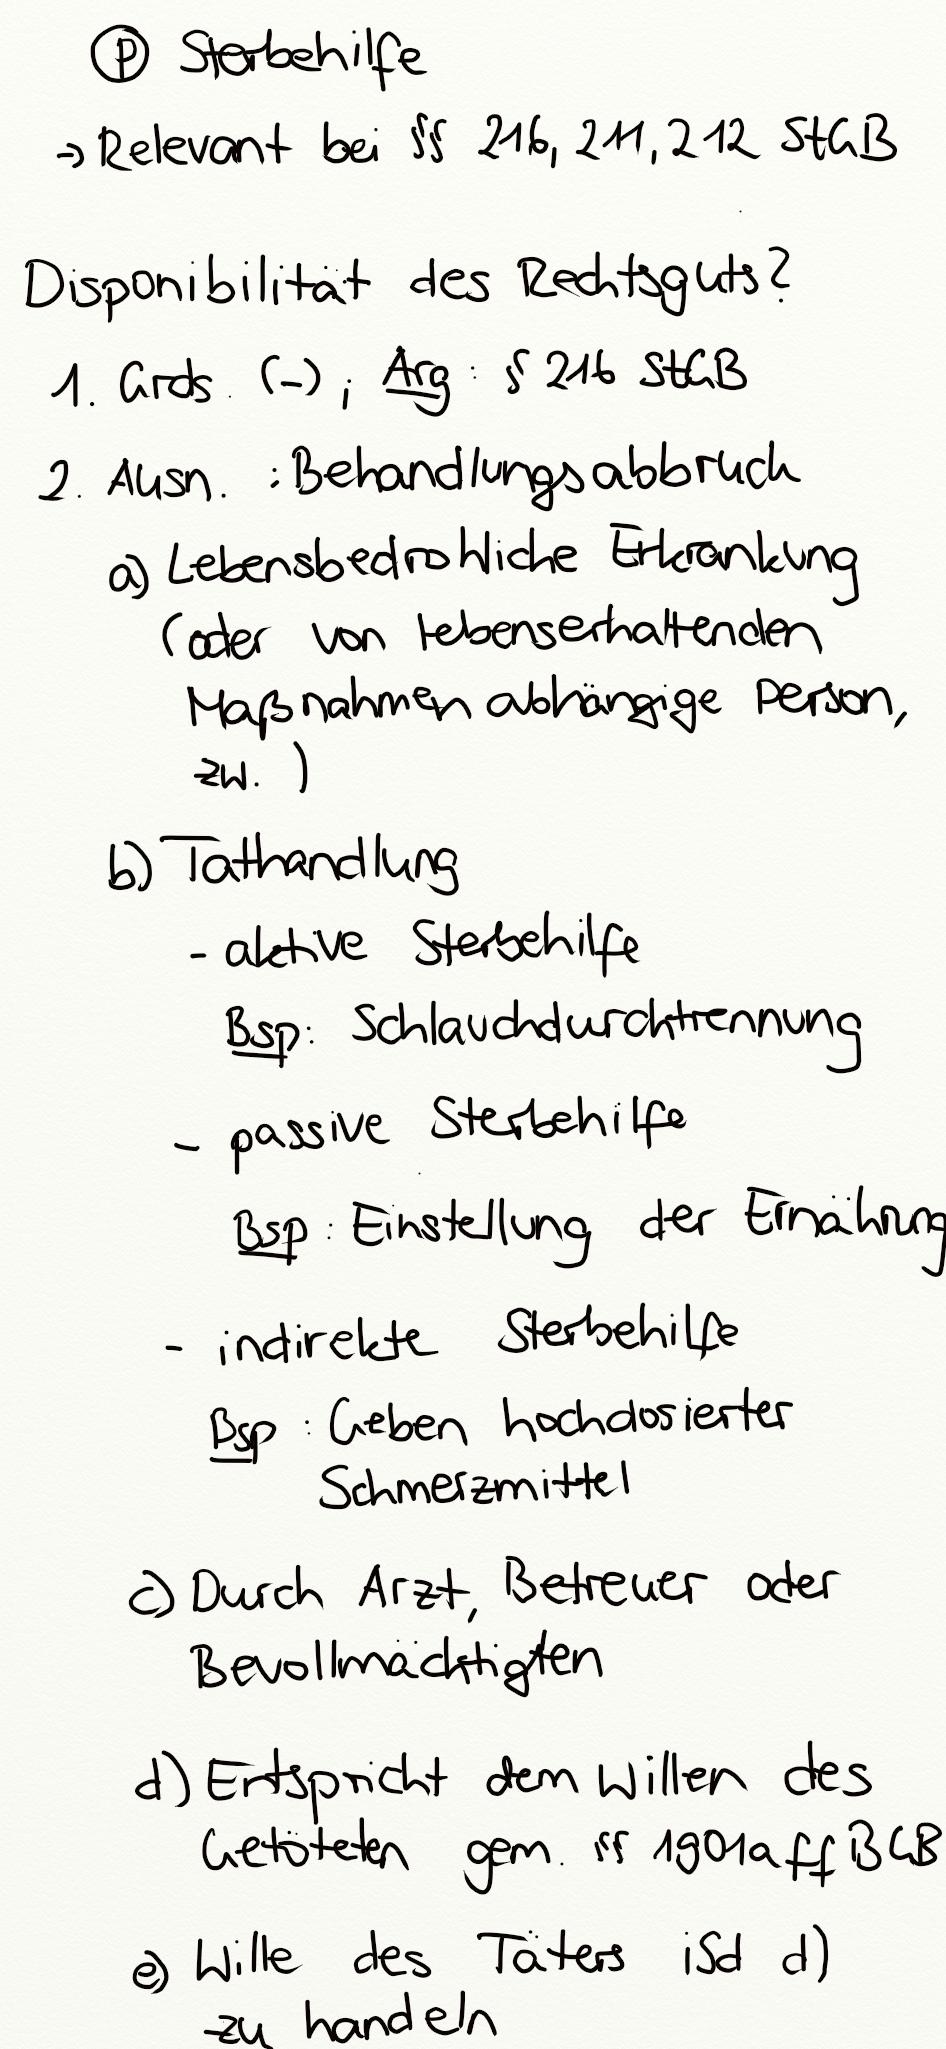 Ⓟ Sterbehilfe
→ Relevant bei §§ 216, 211, 212 StGB
Disponibilität des Rechtsguts?
1. Grds. (-), Arg: § 216 StGB
2. Ausn. : Behandlungsabbruch
a) Lebensbedrohliche Erkrankung
(oder von lebenserhaltenden
Maßnahmen abhängige Person,
zw. )
b) Tathandlung
- aktive Sterbehilfe
Bsp: Schlauchdurchtrennung
- passive Sterbehilfe
Bsp: Einstellung der Ernährung
- indirekte Sterbehilfe
Bsp: Geben hochdosierter
Schmerzmittel
c) Durch Arzt, Betreuer oder
Bevollmächtigten
d) Entspricht dem Willen des
Getöteten gem. §§ 1901a ff BGB
e) Wille des Täters iSd d)
zu handeln